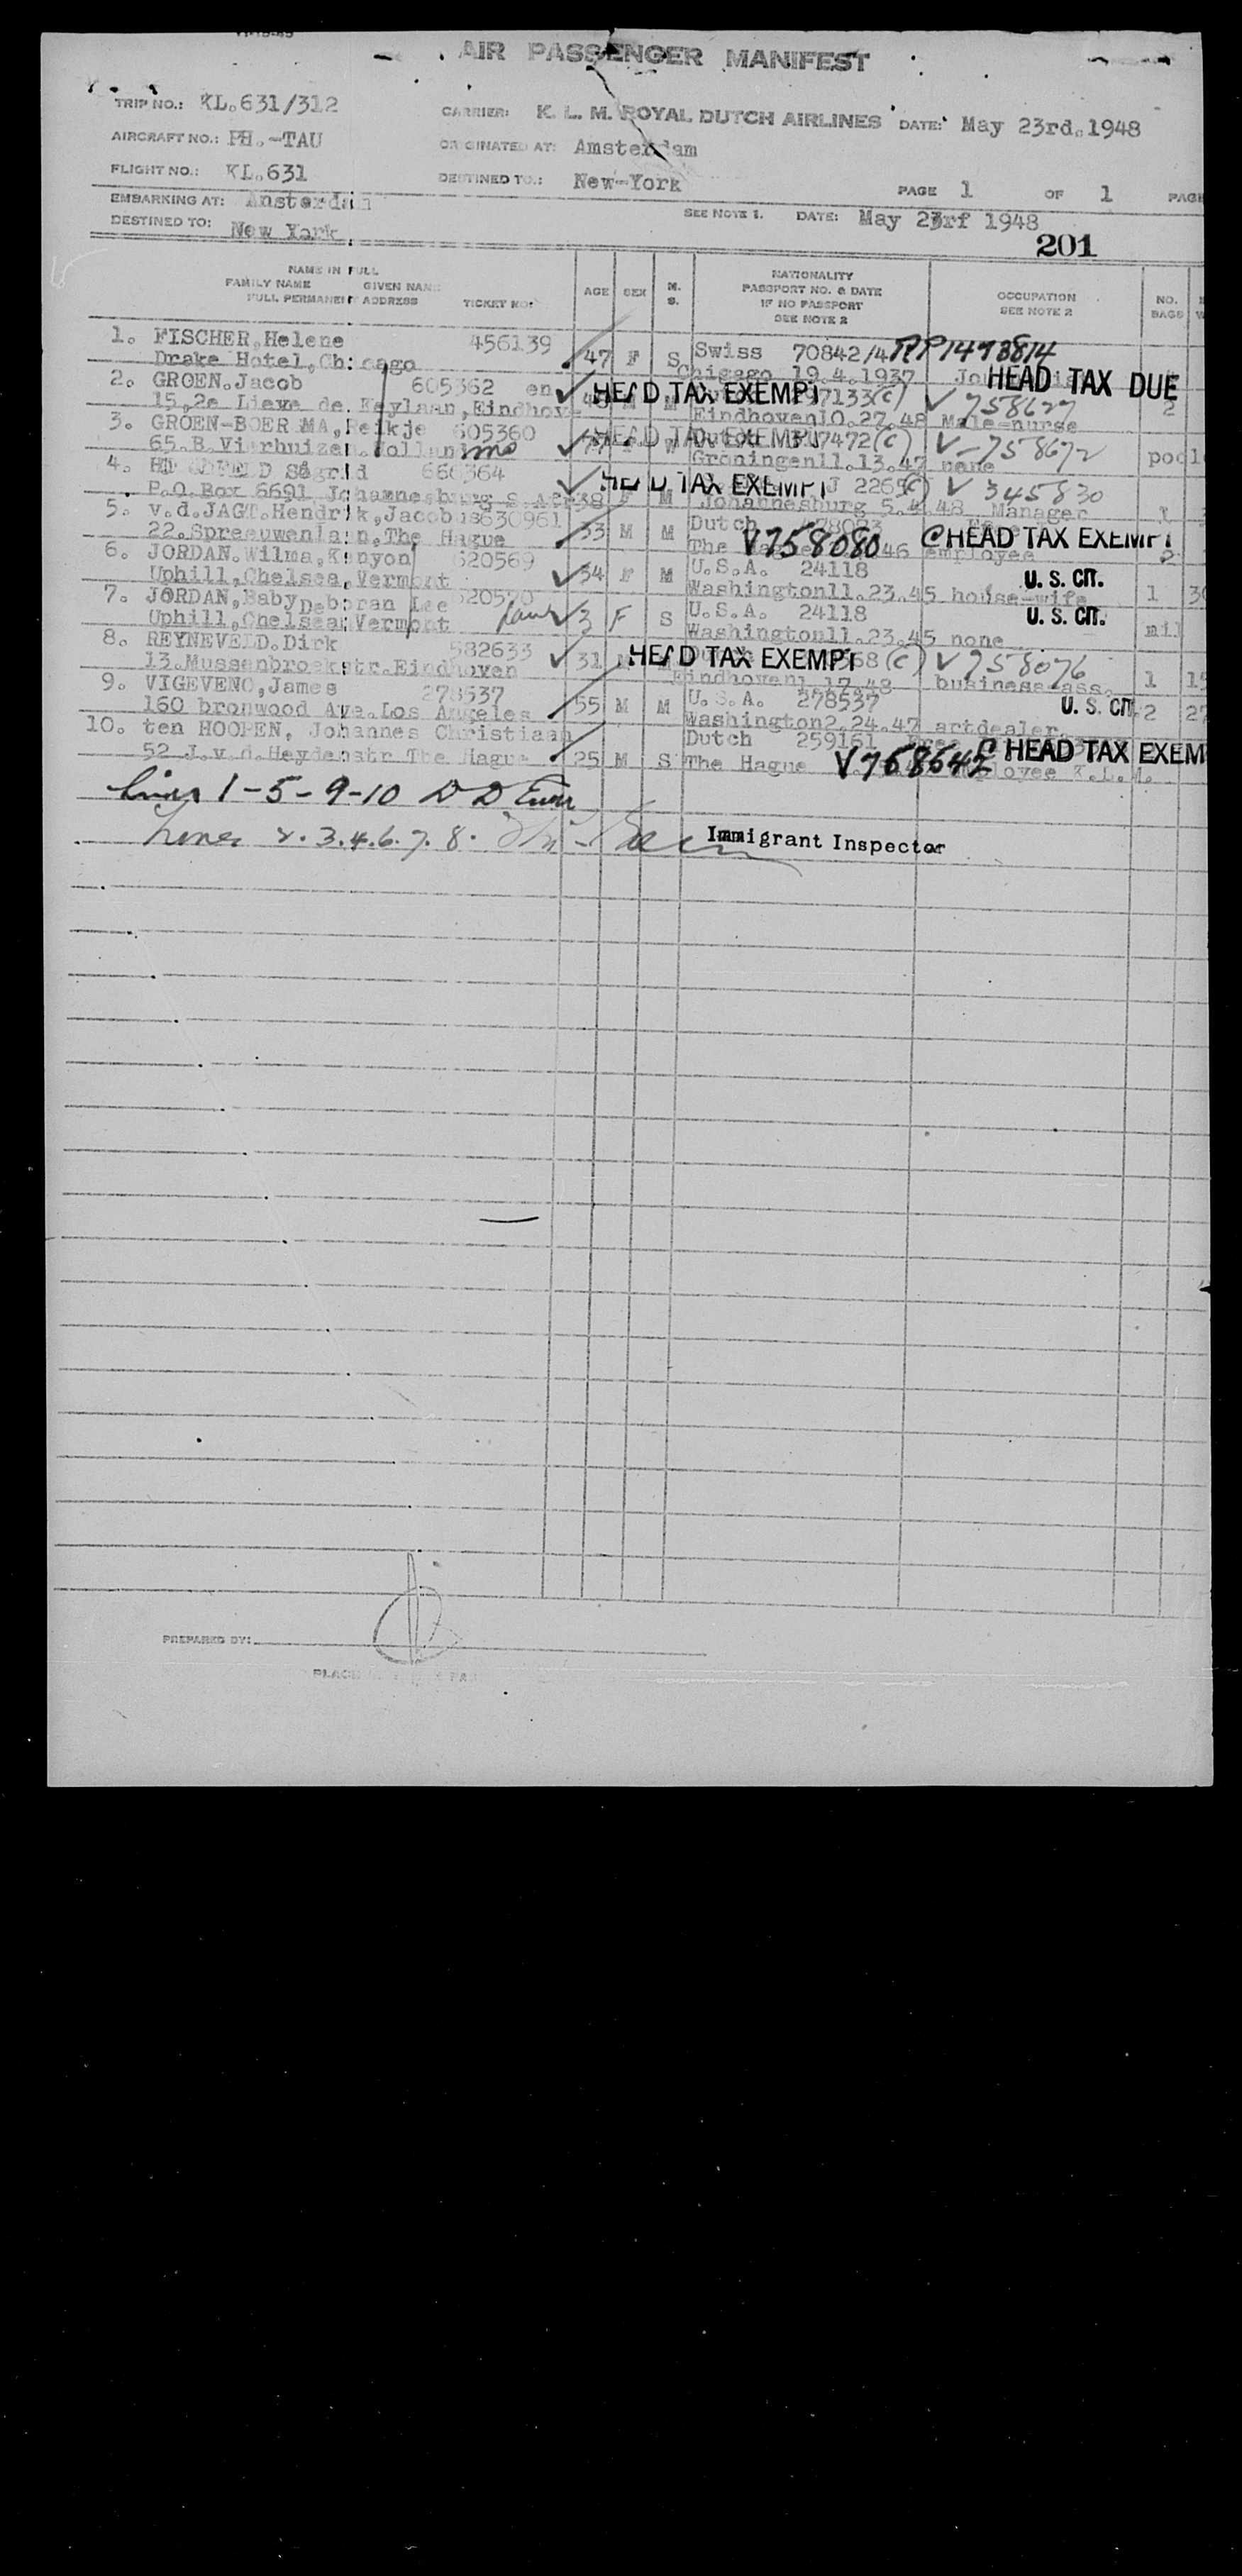 AIR PASSENGER MANIFEST
TRIP NO.: KL.631/312 CARRIER: K. L. M. ROYAL DUTCH AIRLINES DATE: May 23rd.1948
AIRCRAFT NO.: PH.-TAU ORIGINATED AT: Amsterdam
FLIGHT NO.: KL.631 DESTINED TO.: New-York PAGE 1 OF 1 PAGE
EMBARKING AT: Amsterdam SEE NOTE 1. DATE: May 23rf 1948
DESTINED TO: New York. 201
NAME IN FULL
FAMILY NAME GIVEN NAME
FULL PERMANENT ADDRESS TICKET NO:
AGE SEX M. S.
NATIONALITY
PASSPORT NO. & DATE
IF NO PASSPORT
SEE NOTE 2
OCCUPATION
SEE NOTE 2
NO. BAGS
1. FISCHER,Helene 456139 47 F S Swiss 70842/4 RP1493814
Drake Hotel,Chicago Chicago 19.4.1937 HEAD TAX DUE
2. GROEN.Jacob 605362 en HEAD TAX EXEMPT 97133(c) V 758627 2
15,2e Lieve de Keylaan,Eindhov- M Eindhoven10.27.48 Male-nurse
3. GROEN-BOER MA,Reikje 605360 HEAD TAX EXEMPT 7472(c) V-758672
65.B.Vierhuizen.Holland F W Groningen11.13.47 none
4. Sëgrid HEAD TAX EXEMPT J 226 (c) V 345830
P.O.Box 6691 Johannesburg S.Afr 38 F M Johannesburg 5.4.48 Manager 1
5. v.d.JAGT.Hendrik,Jacobus 630961 33 M M Dutch V758080 C HEAD TAX EXEMPT
22.Spreeuwenlaan,The Hague The 46 employee 2
6. JORDAN.Wilma,Kenyon 620569 34 F M U.S.A. 24118 U. S. CIT.
Uphill,Chelsea,Vermont Washington11.23.45 house-wife 1 30
7. JORDAN,Baby Deborah Lee 620570 3 F S U.S.A. 24118 U. S. CIT.
Uphill,Chelsea,Vermont Washington11.23.45 none nil
8. REYNEVELD.Dirk 582633 31 HEAD TAX EXEMPT 68 (c) V 758076
13.Mussenbroekstr.Eindhoven Eindhoven1.17.48 business-ass. 1 15
9. VIGEVENO,James 278537 55 M M U.S.A. 278537 U. S. CIT. 2 27
160 bronwood Ave.Los Angeles Washington2.24.47 artdealer
10. ten HOOPEN, Johannes Christiaan Dutch 259161 C HEAD TAX EXEM
52 J.v.d.Heydenstr The Hague 25 M S The Hague V758642 employee K.L.M.
Lines 1-5-9-10
Lines 2.3.4.6.7.8. Immigrant Inspector
PREPARED BY: